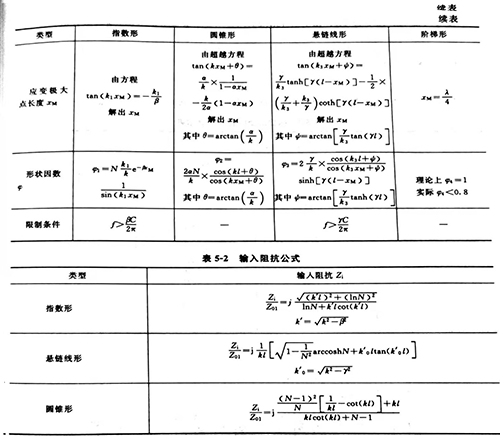 续表
续表
类型 指数形 圆锥形 悬链线形 阶梯形
应变极大点长度 xM
由方程
tan(k₁xM)=-k₁/β
解出 xM
由超越方程
tan(kxM+θ)=
α/k × 1/(1-αxM) -
k/2α (1-αxM)
解出 xM
其中θ=arctan(α/k)
由超越方程
tan(k₃xM+ψ)=
γ/k₃ tanh[γ(l-xM)]-1/2×
(γ/k₃+k₃/γ)coth[γ(l-xM)]
解出 xM
其中ψ=arctan[γ/k₃ tan(γl)]
xM=λ/4
形状因数 φ
φ₁=N k₁/k e^-βxM
1/sin(k₁xM)
φ₂=
2αN/k × cos(kl+θ)/cos(kxM+θ)
其中θ=arctan(α/k)
φ₃=2 γ/k × cos(k₃l+ψ)/cos(k₃xM+ψ)
sinh[γ(l-xM)]
其中ψ=arctan[γ/k₃ tanh(γl)]
理论上 φ₄=1
实际 φ₄<0.8
限制条件 f>βC/2π — f>γC/2π —
表 5-2 输入阻抗公式
类型 输入阻抗 Zi
指数形
Zi/Z01=j √((k′l)²+(lnN)²)/(lnN+k′lcot(k′l))
k′=√(k²-β²)
悬链线形
Zi/Z01=j 1/kl [√(1-1/N²) arccoshN+k′₀ltan(k′₀l)]
k′₀=√(k²-γ²)
圆锥形
Zi/Z01=j ((N-1)²/N [1/kl-cot(kl)]+kl)/(klcot(kl)+N-1)